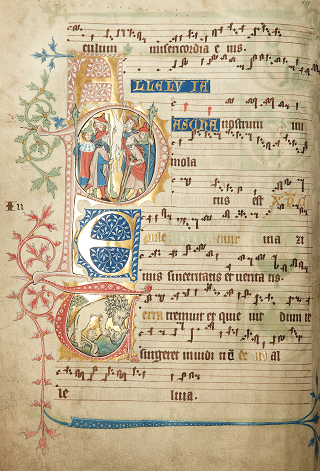 culum misericordia e ius.
LLELV IA
PASCHA nostrum im
mola
In
tus est
Epule mur
mis sinceritatis et uerita tis.
Terra tremuit et quie uit dum re
surgeret
al
le luia.